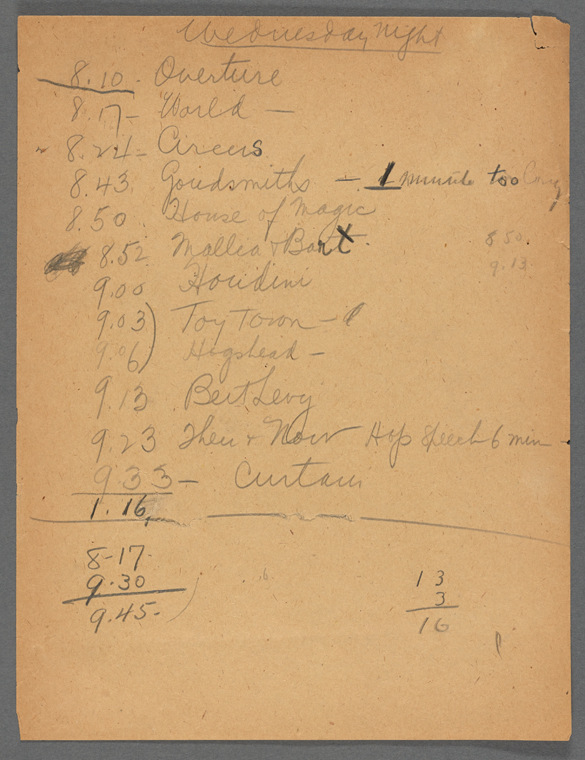 Wednesday Night
8.10 - Overture
8.17 - World -
8.24 - Circus
8.43 Goudsmiths - 1 minute too Long
8.50 House of Magic
8.52 Mallia & Bart x 8 50.
9.00 Houdini 9.13
9.03) Toy Town -
9.06) Hogshead -
9.13 Bert Levy
9.23 Then & Now Hip Speech 6 min -
9.33 - Curtain
1.16
8-17
9.30
9.45-
13
3
16